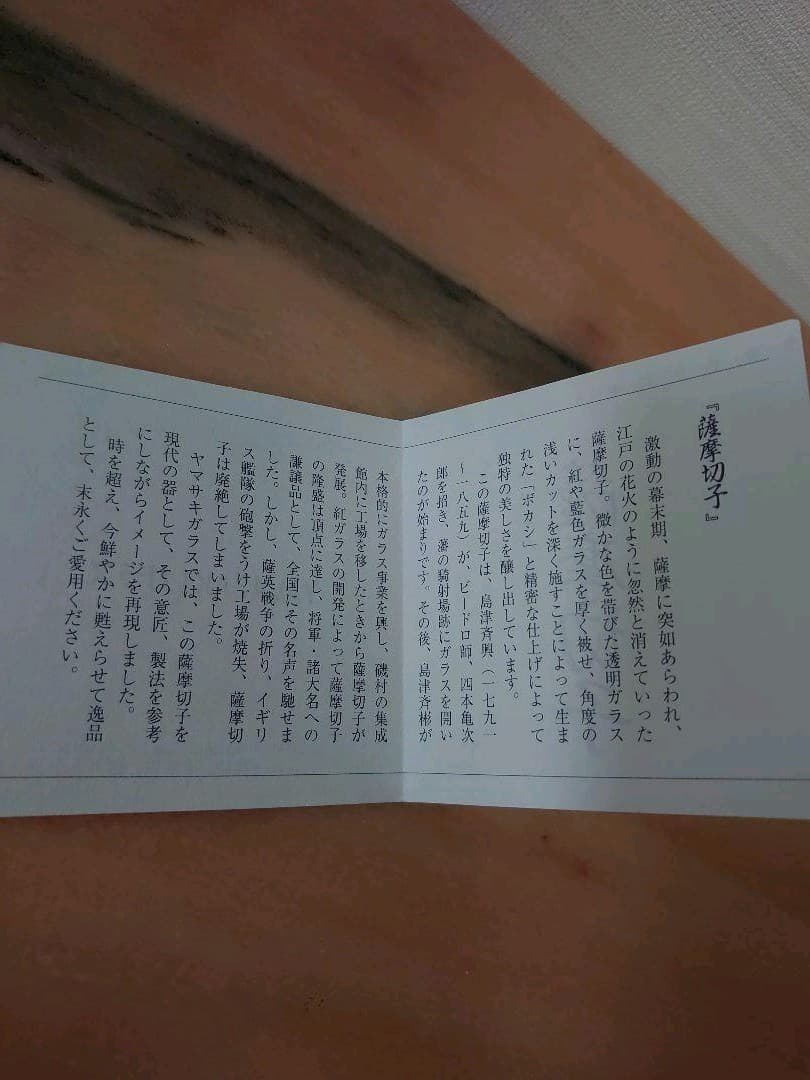 『薩摩切子』
激動の幕末期、薩摩に突如あらわれ、
江戸の花火のように忽然と消えていった
薩摩切子。微かな色を帯びた透明ガラス
に、紅や藍色ガラスを厚く被せ、角度の
浅いカットを深く施すことによって生ま
れた「ボカシ」と精密な仕上げによって
独特の美しさを醸し出しています。
この薩摩切子は、島津斉興(一七九一
〜一八五九)が、ビードロ師、四本亀次
郎を招き、藩の騎射場跡にガラスを開い
たのが始まりです。その後、島津斉彬が
本格的にガラス事業を興し、磯村の集成
館内に工場を移したときから薩摩切子が
発展。紅ガラスの開発によって薩摩切子
の隆盛は頂点に達し、将軍・諸大名への
謙譲品として、全国にその名声を馳せま
した。しかし、薩英戦争の折り、イギリ
ス艦隊の砲撃をうけ工場が焼失、薩摩切
子は廃絶してしまいました。
ヤマサキガラスでは、この薩摩切子を
現代の器として、その意匠、製法を参考
にしながらイメージを再現しました。
時を超え、今鮮やかに甦えらせて逸品
として、末永くご愛用ください。